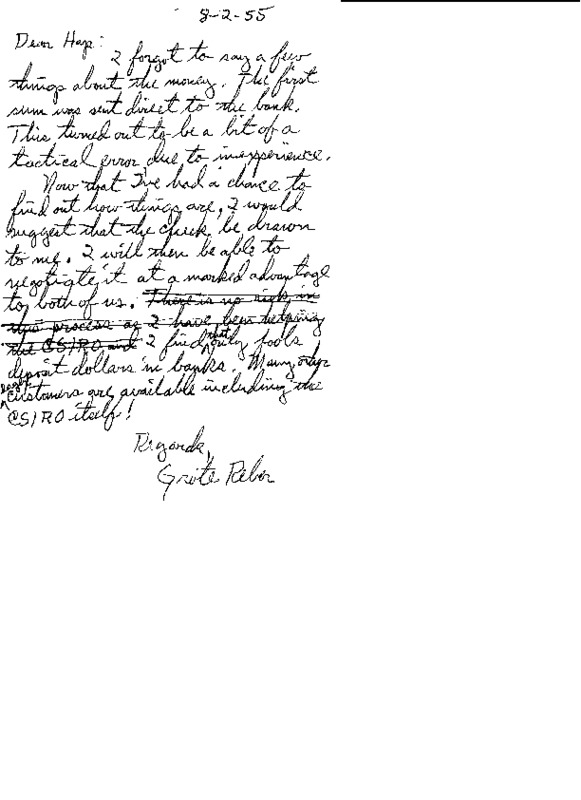 8-2-55
Dear Hap:
I forgot to say a few
things about the money. The first
sum was sent direct to the bank.
This turned out to be a bit of a
tactical error due to inexperience.
Now that I've had a chance to
find out how things are, I would
suggest that the check be drawn
to me. I will then be able to
negotiate it at a marked advantage
to both of us. There is no risk in
this process as I have been helping
the CSIRO and I find that only fools
deposit dollars in banks. Many other
eager customers are available including the
CSIRO itself!
Regards,
Grote Reber